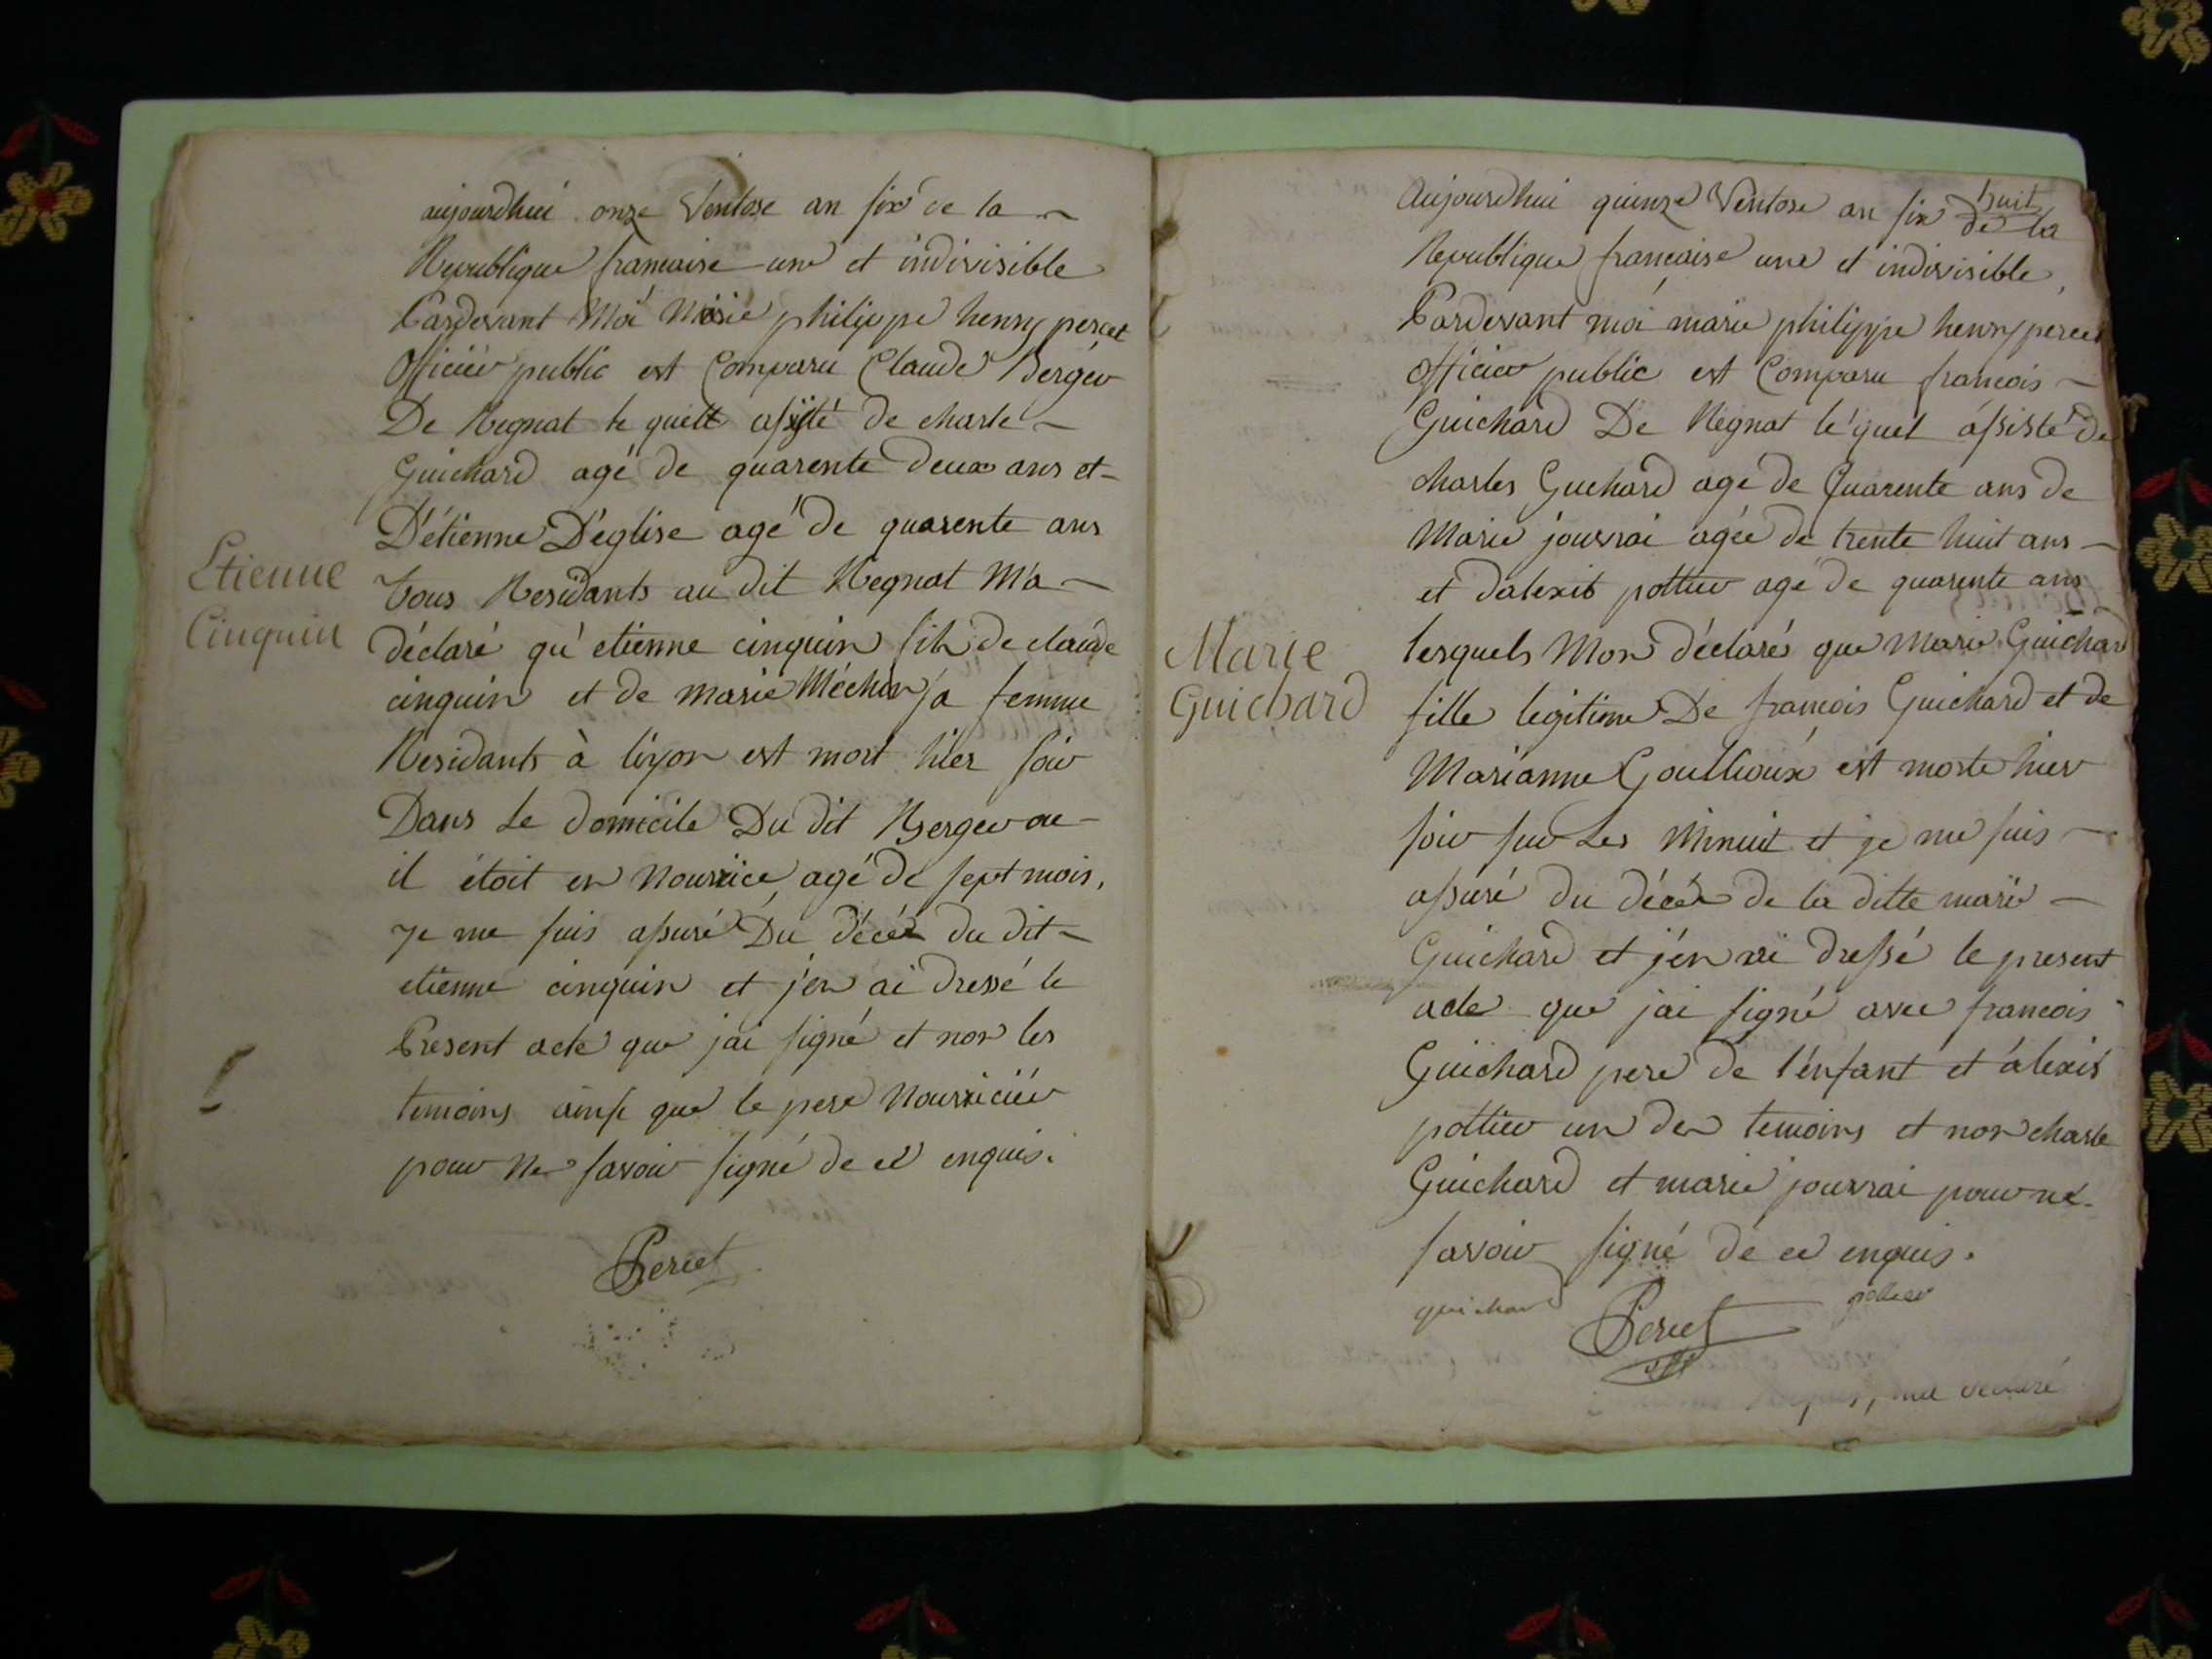 aujourdhui onze Ventose an six de la
Republique francaise une et indivisible
Pardevant Moi Marie philippe henry percet
Officier public est Comparu Claude Berger
De Regnat le quell assisté de charle
Guichard agé de quarente deux ans et
D'étienne D'église agé de quarente ans
Etienne
Cinquin
Tous Residants au dit Regnat M'a
déclaré qu'etienne cinquin fils de claude
cinquin et de marie Méchin sa femme
Residants à liyon est mort hier soir
Dans Le domicile Du dit Berger ou
il étoit en Nourrice agé de sept mois,
Je me suis assuré Du décés du dit
etienne cinquin et j'en ai dressé le
Present acte que jai signé et non les
temoins ainsi que le pere Nourriciér
pour Ne savoir signé de ce enquis.
Percet
Aujourdhui quinze Ventose an six huit de la
Republique francaise une et indivisible,
Pardevant moi marie philippe henry percet
officier public est Comparu francois
Guichard De Regnat léquel assisté de
charles Guchard agé de Quarente ans de
Marie jouvrai agée de trente huit ans
et dalexis pottier agé de quarente ans
Marie
Guichard
lesquels Mon déclarés que Marie Guichard
fille legitime De francois Guichard et de
Marianne Goullioux est morte hier
soir sur Les Minuit et je me suis
assuré du décés de la ditte marie
Guichard et j'en ai dressé le present
acte que jai signé avec francois
Guichard pere de l'énfant et alexis
pottier un des temoins et non charle
Guichard et marie jouvrai pour ne
savoir signé dé ce enquis.
guichard
Percet
potier
declaré